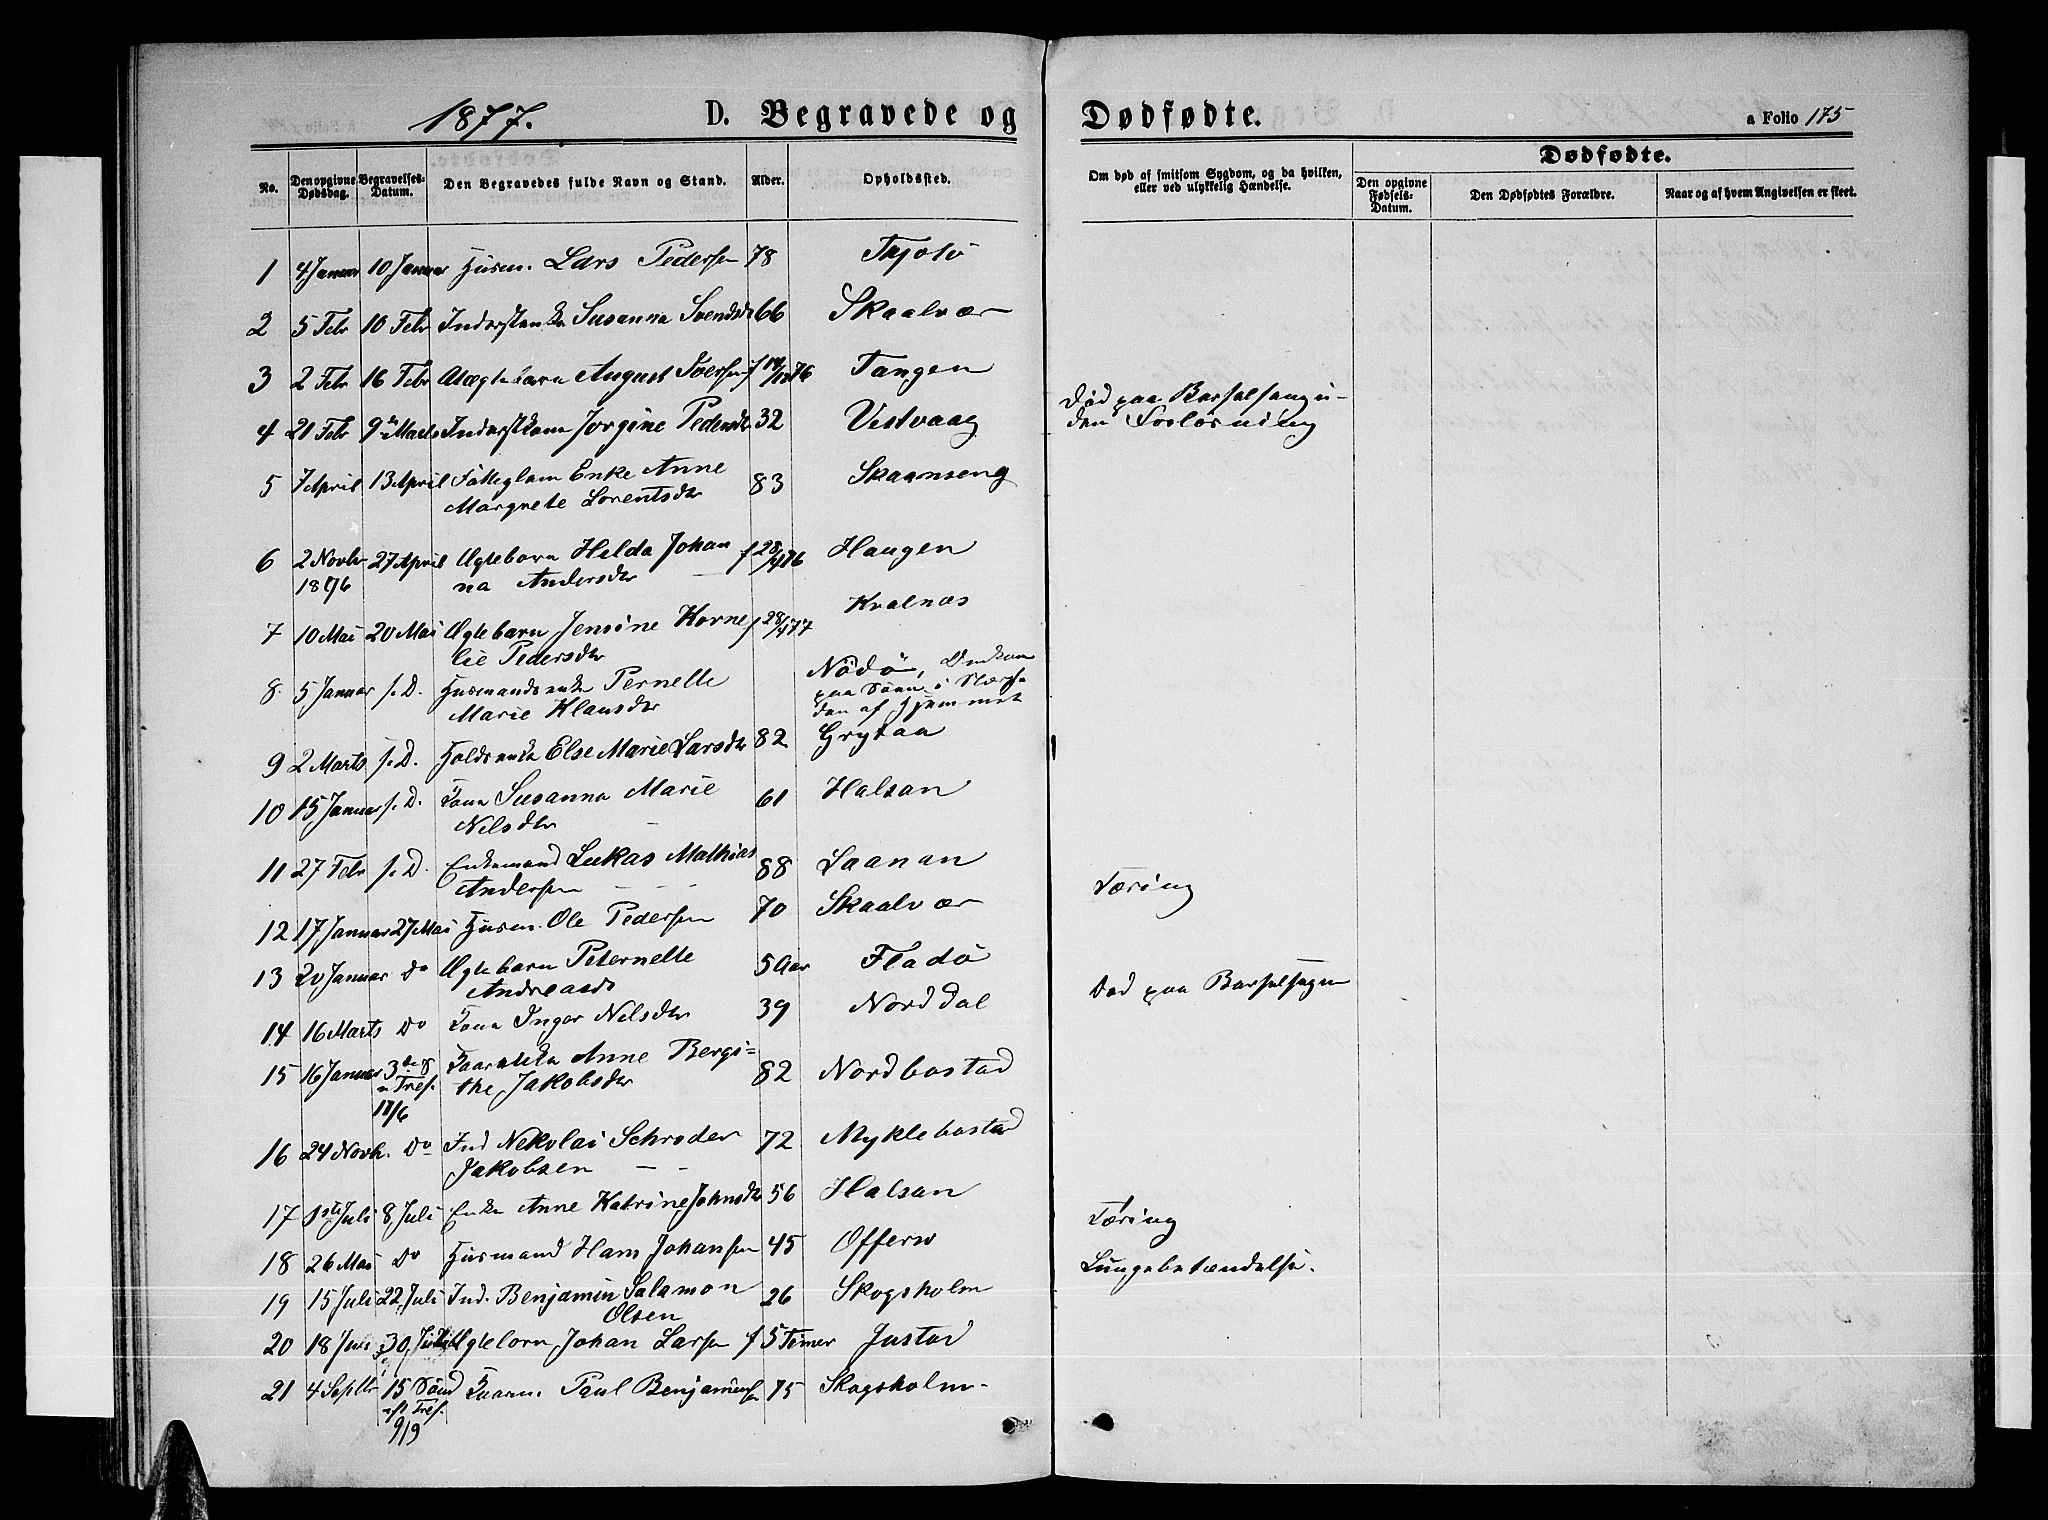 1877. D. Begravede og Dødfødte. a Folio 175
No. Den opgivne Dødsdag. Begravelses-Datum. Den Begravedes fulde Navn og Stand. Alder. Opholdssted. Om død af smitsom Sygdom, og da hvilken, eller ved ulykkelig Hændelse. Dødfødte. Den opgivne Fødsels-Datum. Den Dødfødtes Forældre. Naar og af hvem Angivelsen er skeet.
1 4 Januar 10 Januar Husm. Lars Pedersen 78 Thjøtø
2 5 Febr 10 Febr Susanna Svendsdr 66 Skaalvær
3 2 Febr 16 Febr August Iversen f 76 Tangen
4 21 Febr 9 Marts Jorgine Pedersdr 32 Vestvaag Død paa Barselseng u-
den Forløsning
5 7 April 13 April Enke Anne 83 Skaanseng
Margrete Lorentsdr
6 2 Novbr 27 April Ægtebarn Helda Johan f 28/4 76 Haugen
1876 na Andersdr
7 10 Mai 20 Mai Ægtebarn Jensine Korne f 28/4 77 Kvalnæs
lie Pedersdr
8. 5 Januar s. D. Husmandsenke Pernelle Nødø, Omkom
Marie Klausdr paa Søen i Nærhe
den af Hjemmet
9 2 Marts s. D. Else Marie Larsdr 82 Grytaa
10 15 Januar s. D. Kone Susanna Marie 61 Halsan
Nilsdr
11 27 Febr s. D. Enkemand Lukas Mathias 88 Laanan
Andersen
12 17 Januar 27 Mai Husm. Ole Pedersen 70 Skaalvær Tæring
13 20 Januar Do Ægtebarn Peternelle 5 Aar Fladø
Andreasd
14 16 Marts Do Kone Inger Nilsdr 39 Norddal Død paa Barselsengen
15 16 Januar 3de S Anne Bergi= 82 Nordbostad
e Tref. the Jakobsdr
17/6
16 24 Novb. Do Ind Nekolai Schrøder 72 Myklebostad
Jakobsen
17 1ste Juli 8, Juli Enke Anne Katrine Johnsdr 56 Halsan Tæring
18 26 Mai Do Husmand Hans Johansen 45 Offersø Lungebetændelse.
19 15 Juli 22, Juli Ind. Benjamin Salamon 26 Skogsholm
Olsen
20 18 30, Johan Larsen f 5 Timer Justad
21 4 Septbr 15 Sønd Kaarm. Paul Benjaminsen 75 Skogsholm
eft Tref.
9/9